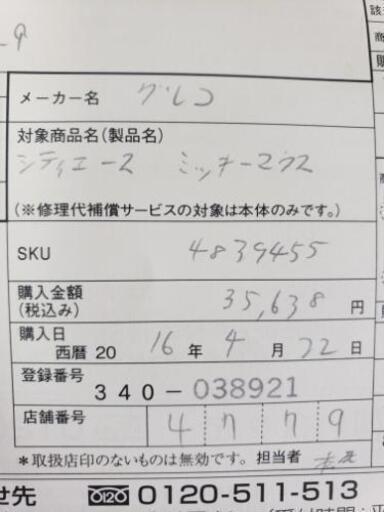 -9
メーカー名 グレコ
対象商品名(製品名)
シティエース ミッキーマウス
(※修理代補償サービスの対象は本体のみです。)
SKU 4839455
購入金額
(税込み) 35,638 円
購入日
西暦 20 16 年 4 月 22 日
登録番号
340-038921
店舗番号 4779
*取扱店印のないものは無効です。担当者
せ先 0120-511-513